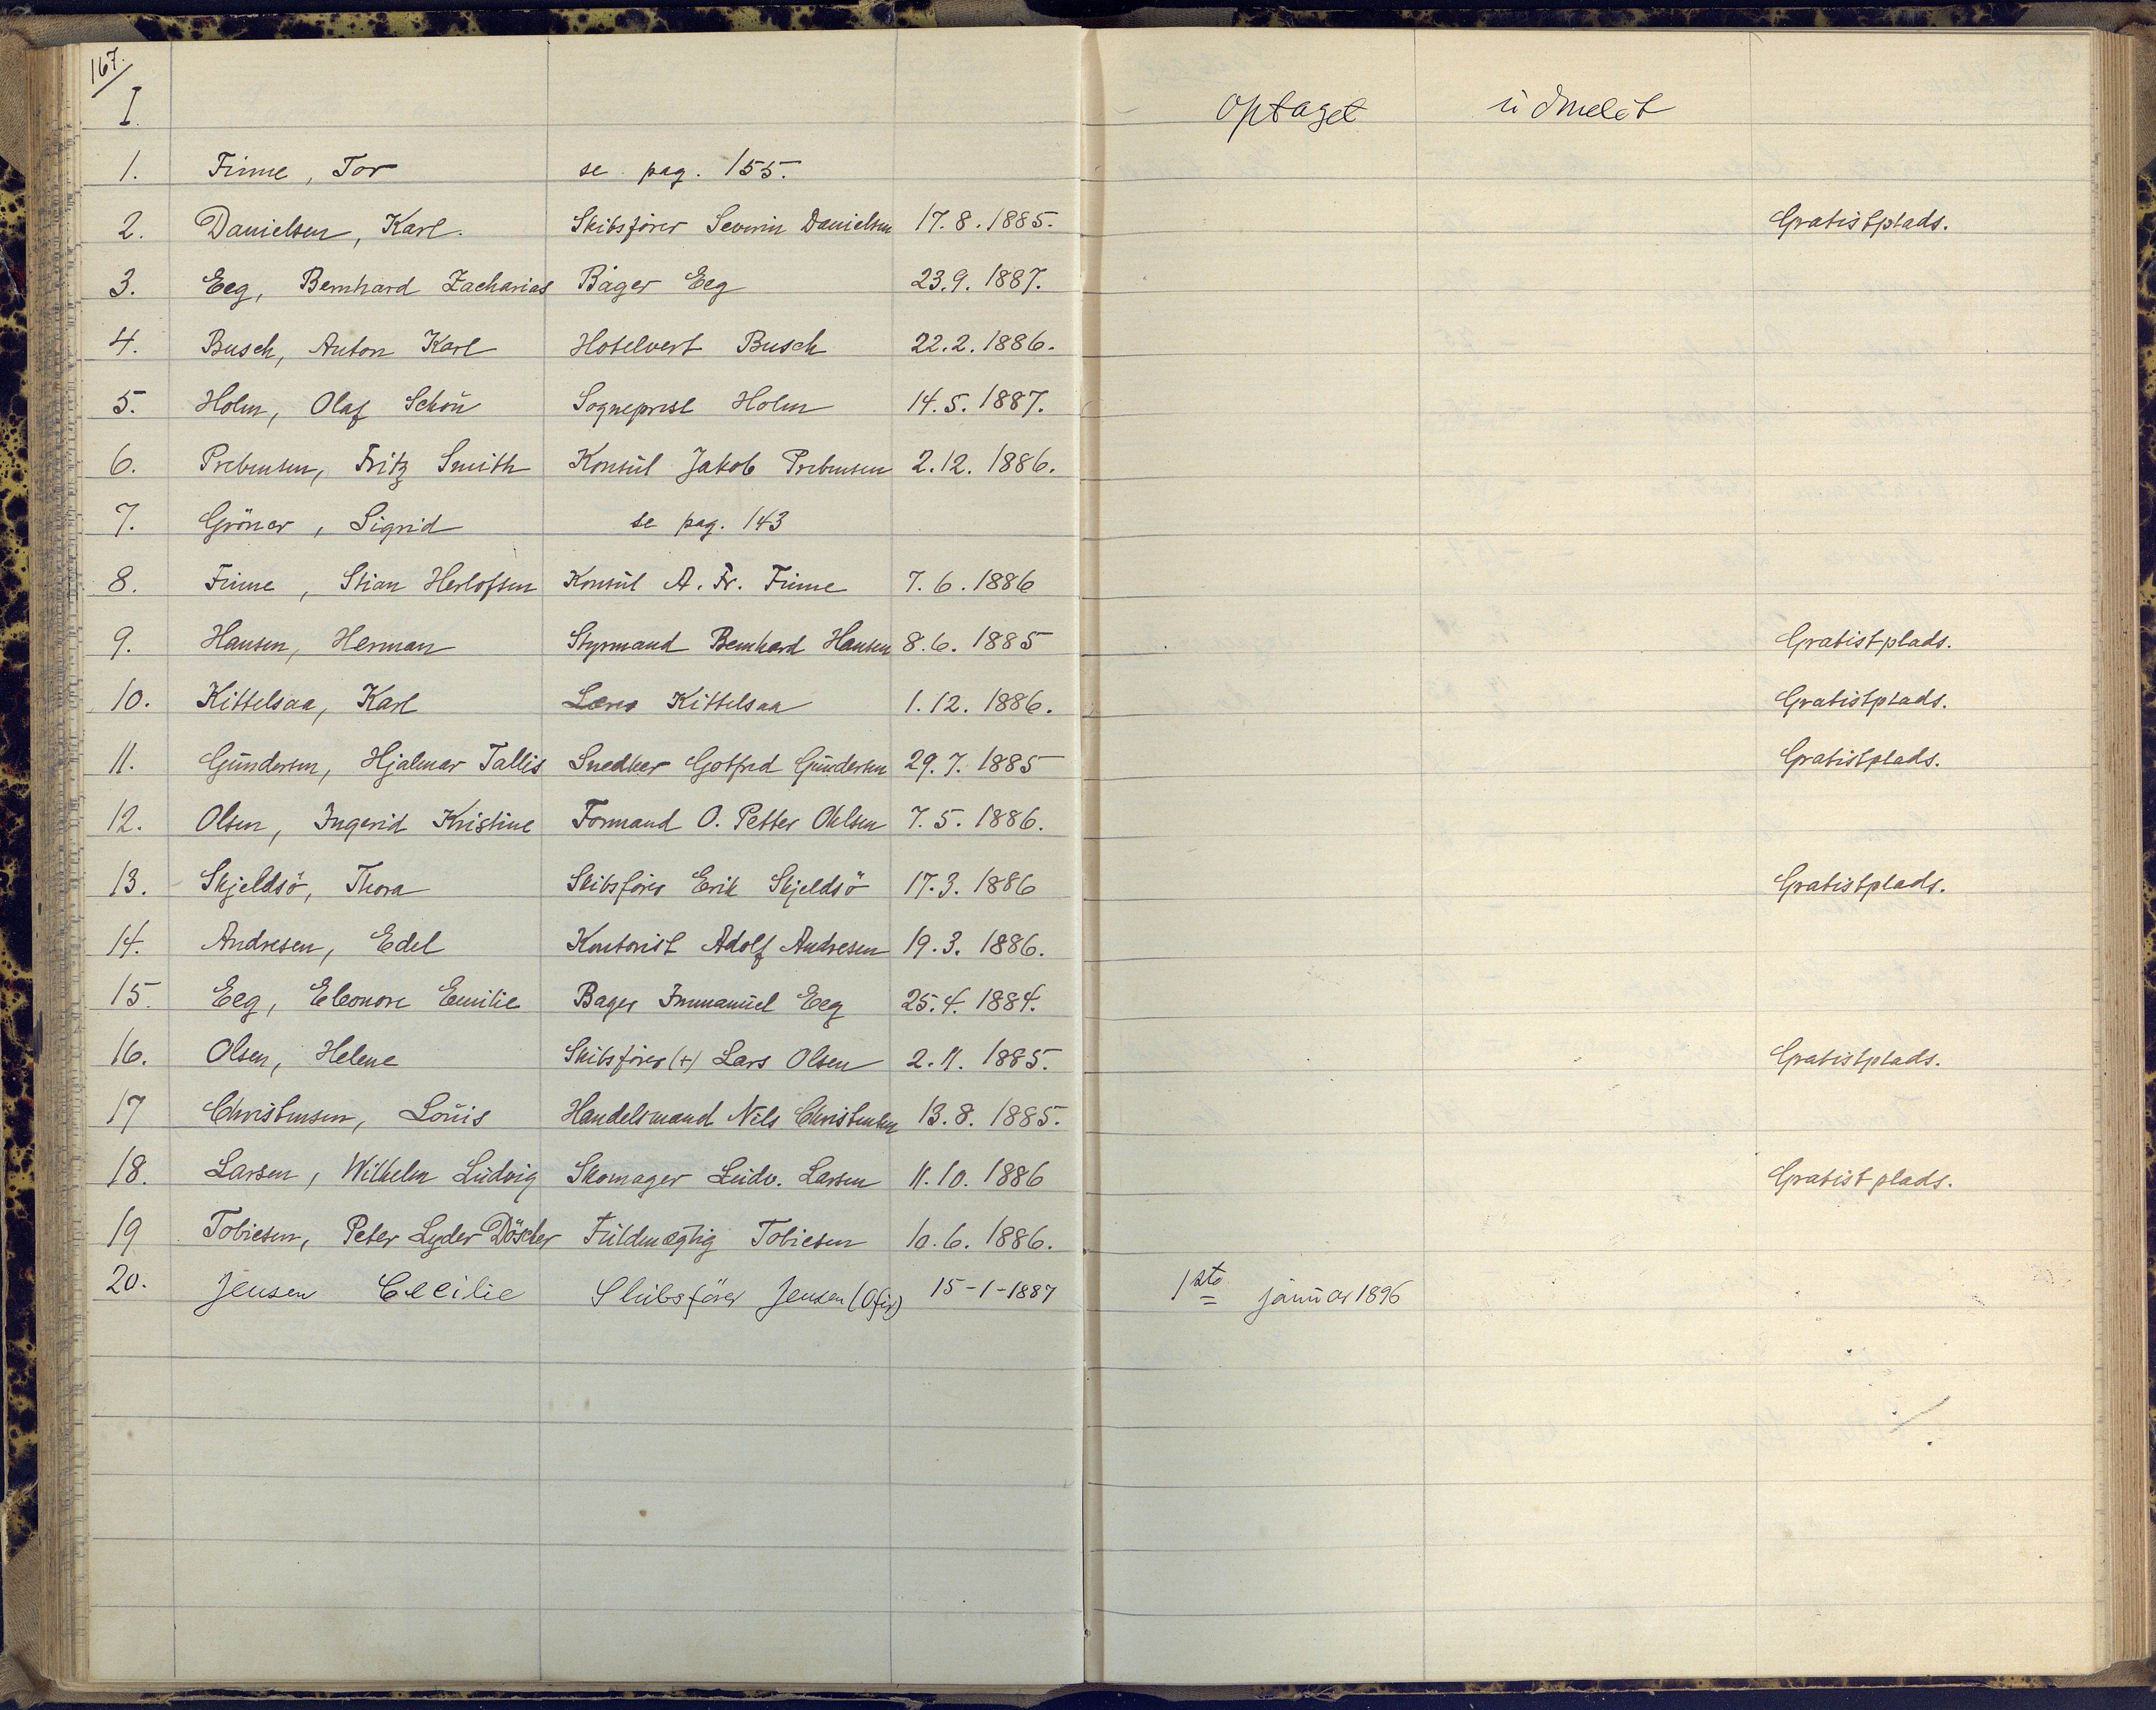 167.
I. optaget udmeldt
1. Finne, Tor se pag. 155.
2. Danielsen, Karl. Skibsfører Severin Danielsen 17.8.1885. Gratistplads.
3. Eeg, Bernhard Zacharias Bager Eeg 23.9.1887.
4. Busch, Anton Karl Hotelvert Busch 22.2.1886.
5. Holm, Olaf Schön Sogneprest Holm 14.5.1887.
6. Prebensen, Fritz Smith Konsul Jakob Prebensen 2.12.1886.
7. Gröner, Sigrid se pag. 143
8. Finne, Stian Herlofsen Konsul A. Fr. Finne 7.6.1886
9. Hansen, Herman Styrmand Bernhard Hansen 8.6.1885 Gratistplads.
10. Kittelsaa, Karl Kittelsaa 1.12.1886. Gratistplads.
11. Gundersen, Hjalmar Tallis Snedker Gotfred Gundersen 29.7.1885 Gratistplads.
12. Olsen, Ingerid Kristine Formand O. Petter Ohlsen 7.5.1886.
13. Skjeldsö, Thora Skibsfører Erik Skjeldsö 17.3.1886 Gratistplads.
14. Andresen, Edel Kontorist Adolf Andresen 19.3.1886.
15. Eeg, Eleonore Emilie Bager Immanuel Eeg 25.4.1884.
16. Olsen, Helene Skibsfører (+) Lars Olsen 2.11.1885. Gratistplads.
17 Christensen, Louis Handelsmand Nils Christensen 13.8.1885.
18. Larsen, Wilhelm Ludvig Skomager Ludv. Larsen 11.10.1886 Gratistplads.
19 Tobiesen, Peter Lyder Döscher Fuldmægtig Tobiesen 10.6.1886.
20. Jensen Cecilie Skibsförer Jensen (Ofir) 15-1-1887 1ste januar 1896